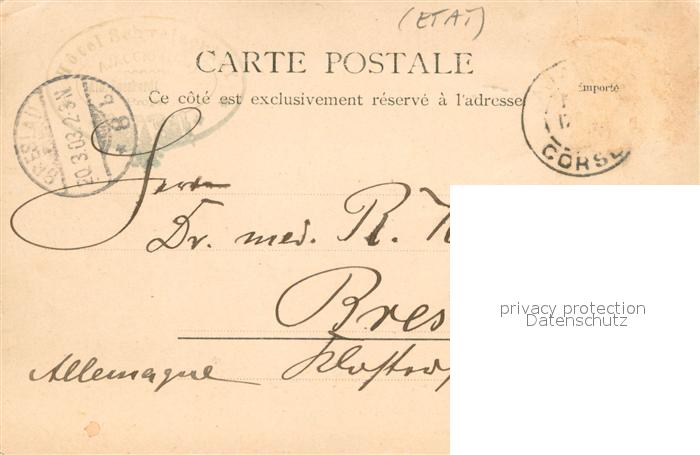 (ETAT)
Hôtel
CARTE POSTALE
Ce côté est exclusivement réservé à l'adresse
importé
BRESLAU
20.3.03.2-3N.
* 9
8
CORSE
Herrn
Dr. med. R. K
Bres
Allemagne Kloster
privacy protection
Datenschutz